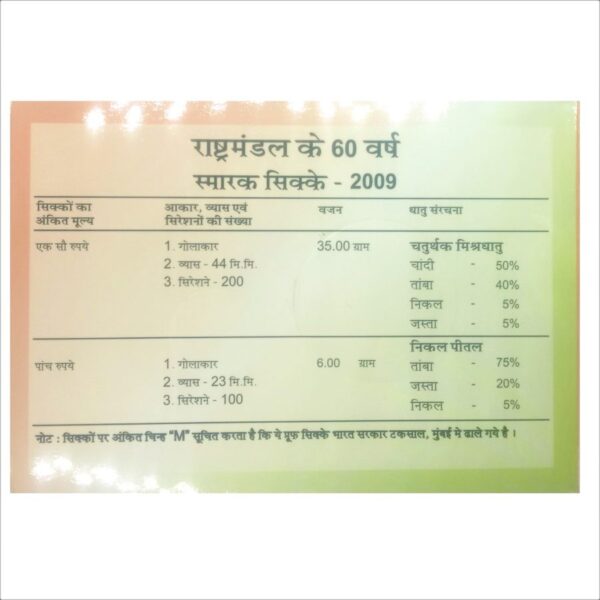 राष्ट्रमंडल के 60 वर्ष
स्मारक सिक्के - 2009
सिक्कों का अंकित मूल्य आकार, व्यास एवं सिरेशनों की संख्या वजन धातु संरचना
एक सौ रुपये 1. गोलाकार 35.00 ग्राम चतुर्थक मिश्रधातु
2. व्यास - 44 मि.मि. चांदी - 50%
3. सिरेशने - 200 तांबा - 40%
निकल - 5%
जस्ता - 5%
निकल पीतल
पांच रुपये 1. गोलाकार 6.00 ग्राम तांबा - 75%
2. व्यास - 23 मि.मि. जस्ता - 20%
3. सिरेशने - 100 निकल - 5%
नोट : सिक्कों पर अंकित चिन्ह "M" सूचित करता है कि ये प्रूफ सिक्के भारत सरकार टकसाल, मुंबई मे ढाले गये है ।